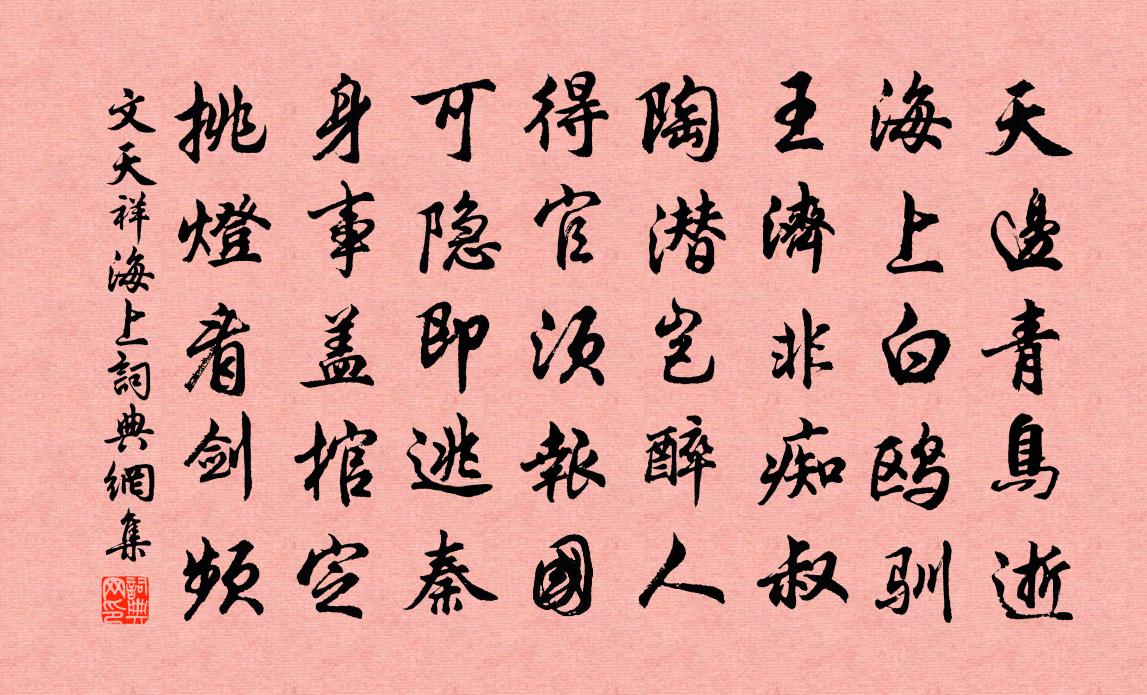 天邊青鳥逝
海上白鸥驯
王濟非痴叔
陶潜岂醉人
得官须報國
可隐即逃秦
身事盖棺定
挑燈看剑频
文天祥海上詞典網集
詞典網印